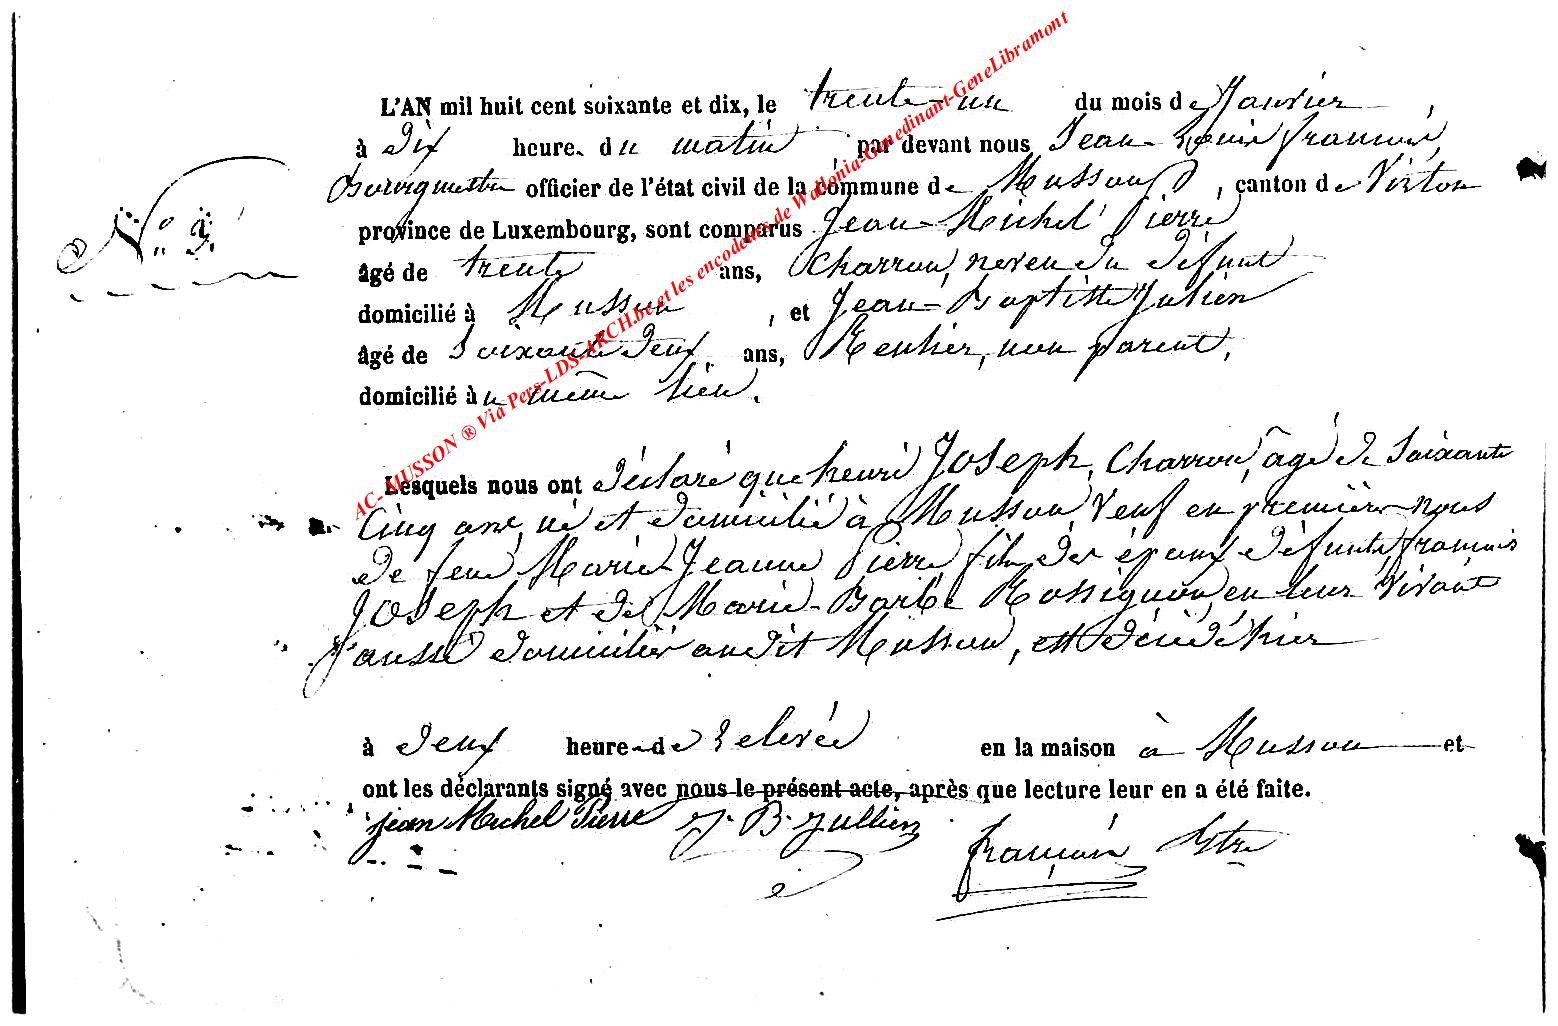 L'AN mil huit cent soixante et dix, le trente-un du mois de Janvier,
à Dix heure. du matin par devant nous Jean-Louis françois,
Bourgmestre officier de l'état civil de la commune de Musson, canton de Virton
N° 2.
province de Luxembourg, sont comparus Jean-Michel Pierre
âgé de trente ans, Charron, neveu du défunt
domicilié à Musson, et Jean-Baptiste Julien
âgé de Soixante Deux ans, Rentier, non parent,
domicilié au même lieu.
Lesquels nous ont déclaré que henri Joseph, Charron, âgé de Soixante
Cinq ans, né et domicilié à Musson Veuf en premières nous
de feue Marie-Jeanne Pierre fils des époux défunts françois
Joseph et de Marie-Barbe Rossignon, en leur vivant
aussi domiciliés audit Musson, est décédé hier
à deux heure de relevée en la maison à Musson et
ont les déclarants signé avec nous le présent acte, après que lecture leur en a été faite.
jean Michel Pierre J. B. Jullien
françois Bstre
AC-MUSSON ® Via Pers-LDS-ARCH.be et les encodeurs de Wallonia-Genedinant-GeneLibramont